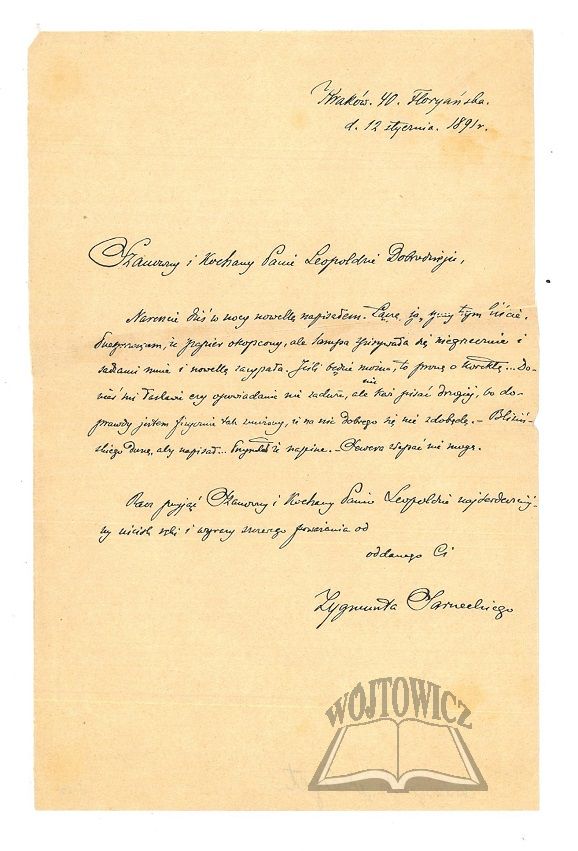 Kraków. 40. Floryańska.
d. 12 stycznia. 1891 r.
Szanowny i Kochany Panie Leopoldzie Dobrodzieju,
Nareszcie dziś w nocy nowellę napisałem. Łączę ją przy tym liście.
Przepraszam, że papier okopcony, ale lampa zachowała się niegrzecznie i
sadzami mnie i nowellę zasypała. Jeśli będzie można, to proszę o korektę... Do-
nieś mi łaskawie czy opowiadanie nie za duże, ale każ pisać drugiej, bo do-
nie
prawdy jestem fizycznie tak znużony, że na nic dobrego się nie zdobędę. – Bliziń-
skiego duszę, aby napisał... że napisze. – Sewera złapać nie mogę.
Racz przyjąć Szanowny i Kochany Panie Leopoldzie najserdeczniej-
szy uścisk ręki i wyrazy szczerego poważania od
oddanego Ci
Zygmunta Sarneckiego
WÓJTOWICZ